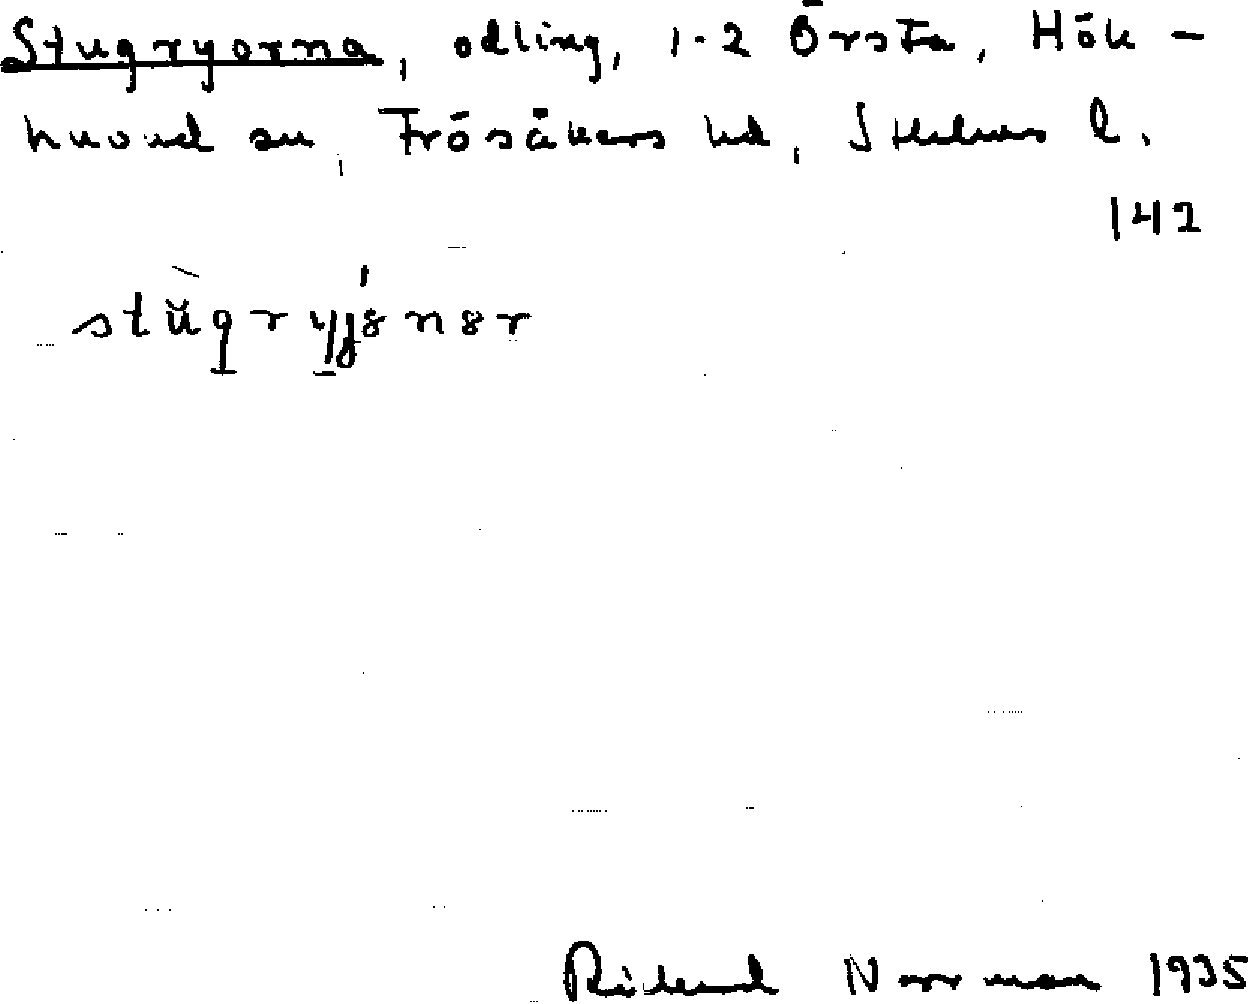 Stugryorna, odling, 1-2 Örsta, Hök-
huvud sn, Frösåkers hd, Sthlms l.
142
stùgryjȣnȣr
Rikard Norrman 1935